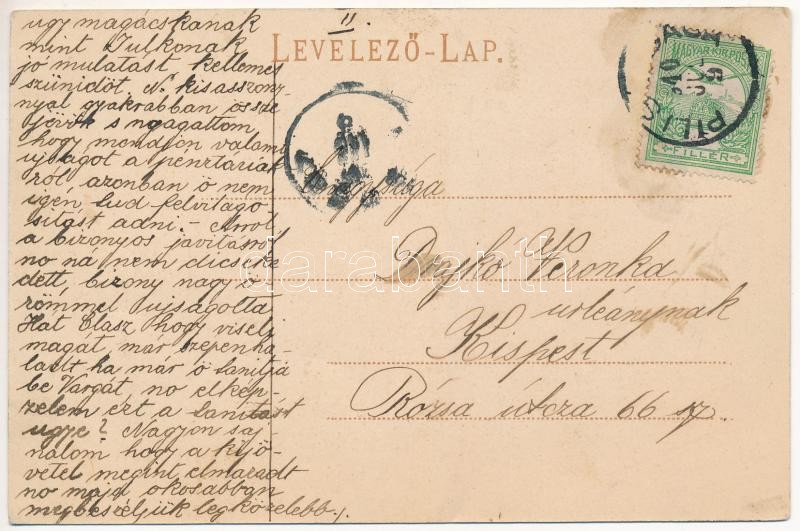 II.
ugy magácskanak
mint Julkonak
jó mulatást kellemes
szünidőt. N. kisasszony-
nyal gyakrabban össze
jövök s nógattom
hogy mondjon valami
ujságot a penztariak
ról, azonban ő nem
igen tud felvilágo
sitást adni. - Arról
a bizonyos javitásról
no ná nem dicseke
dett, bizony nagy ö-
römmel ujságolta
Hat Olasz hogy viseli
magát már szepen ha-
ladt ha már ő tanitja
be Vargát no elkép-
zelem ért a tanitást
ugye? Nagyon saj
nálom hogy a kijö-
vetel megint elmaradt
no majd okosabban
megbeszéljük legközelebb.
LEVELEZŐ-LAP.
MAGYAR KIR. POSTA
FILLÉR
PILIS
Őnagysága
Bojkó Veronka
urleánynak
Kispest
Rózsa útcza 66 sz.
darabanth